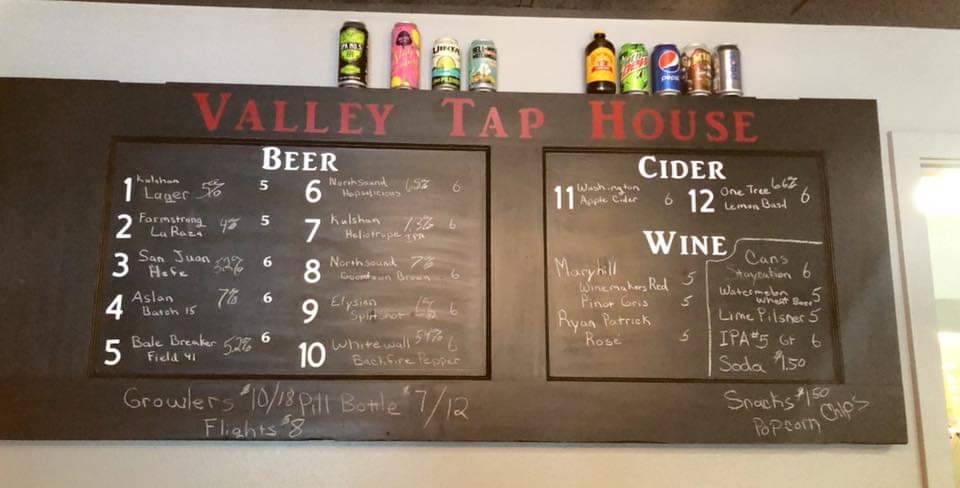 VALLEY TAP HOUSE
BEER
1 Kulshan
Lager 5% 5
2 Farmstrong
La Raza 4% 5
3 San Juan
Hefe 5.2% 6
4 Aslan
Batch 15 7% 6
5 Bale Breaker
Field 41 5.2% 6
6 Northsound
Hopsolicious 6
7 Kulshan
Heliotrope IPA 7.3% 6
8 Northsound 7%
Brown 6
9 Elysian
Split Shot 6
10 Whitewall 5.4% 6
Backfire Pepper
CIDER
11 Washington
Apple Cider 6
12 One Tree 6.6%
Lemon Basil 6
WINE
Maryhill
Winemakers Red 5
Pinot Gris 5
Ryan Patrick
Rose 5
Cans
Staycation 6
Watermelon
Wheat Beer 5
Lime Pilsner 5
IPA #5 Gr 6
Soda $1.50
Growlers $10/18 Pill Bottle $7/12
Flights $8
Snacks $1.50
Popcorn Chip's
Mtn Dew
pepsi